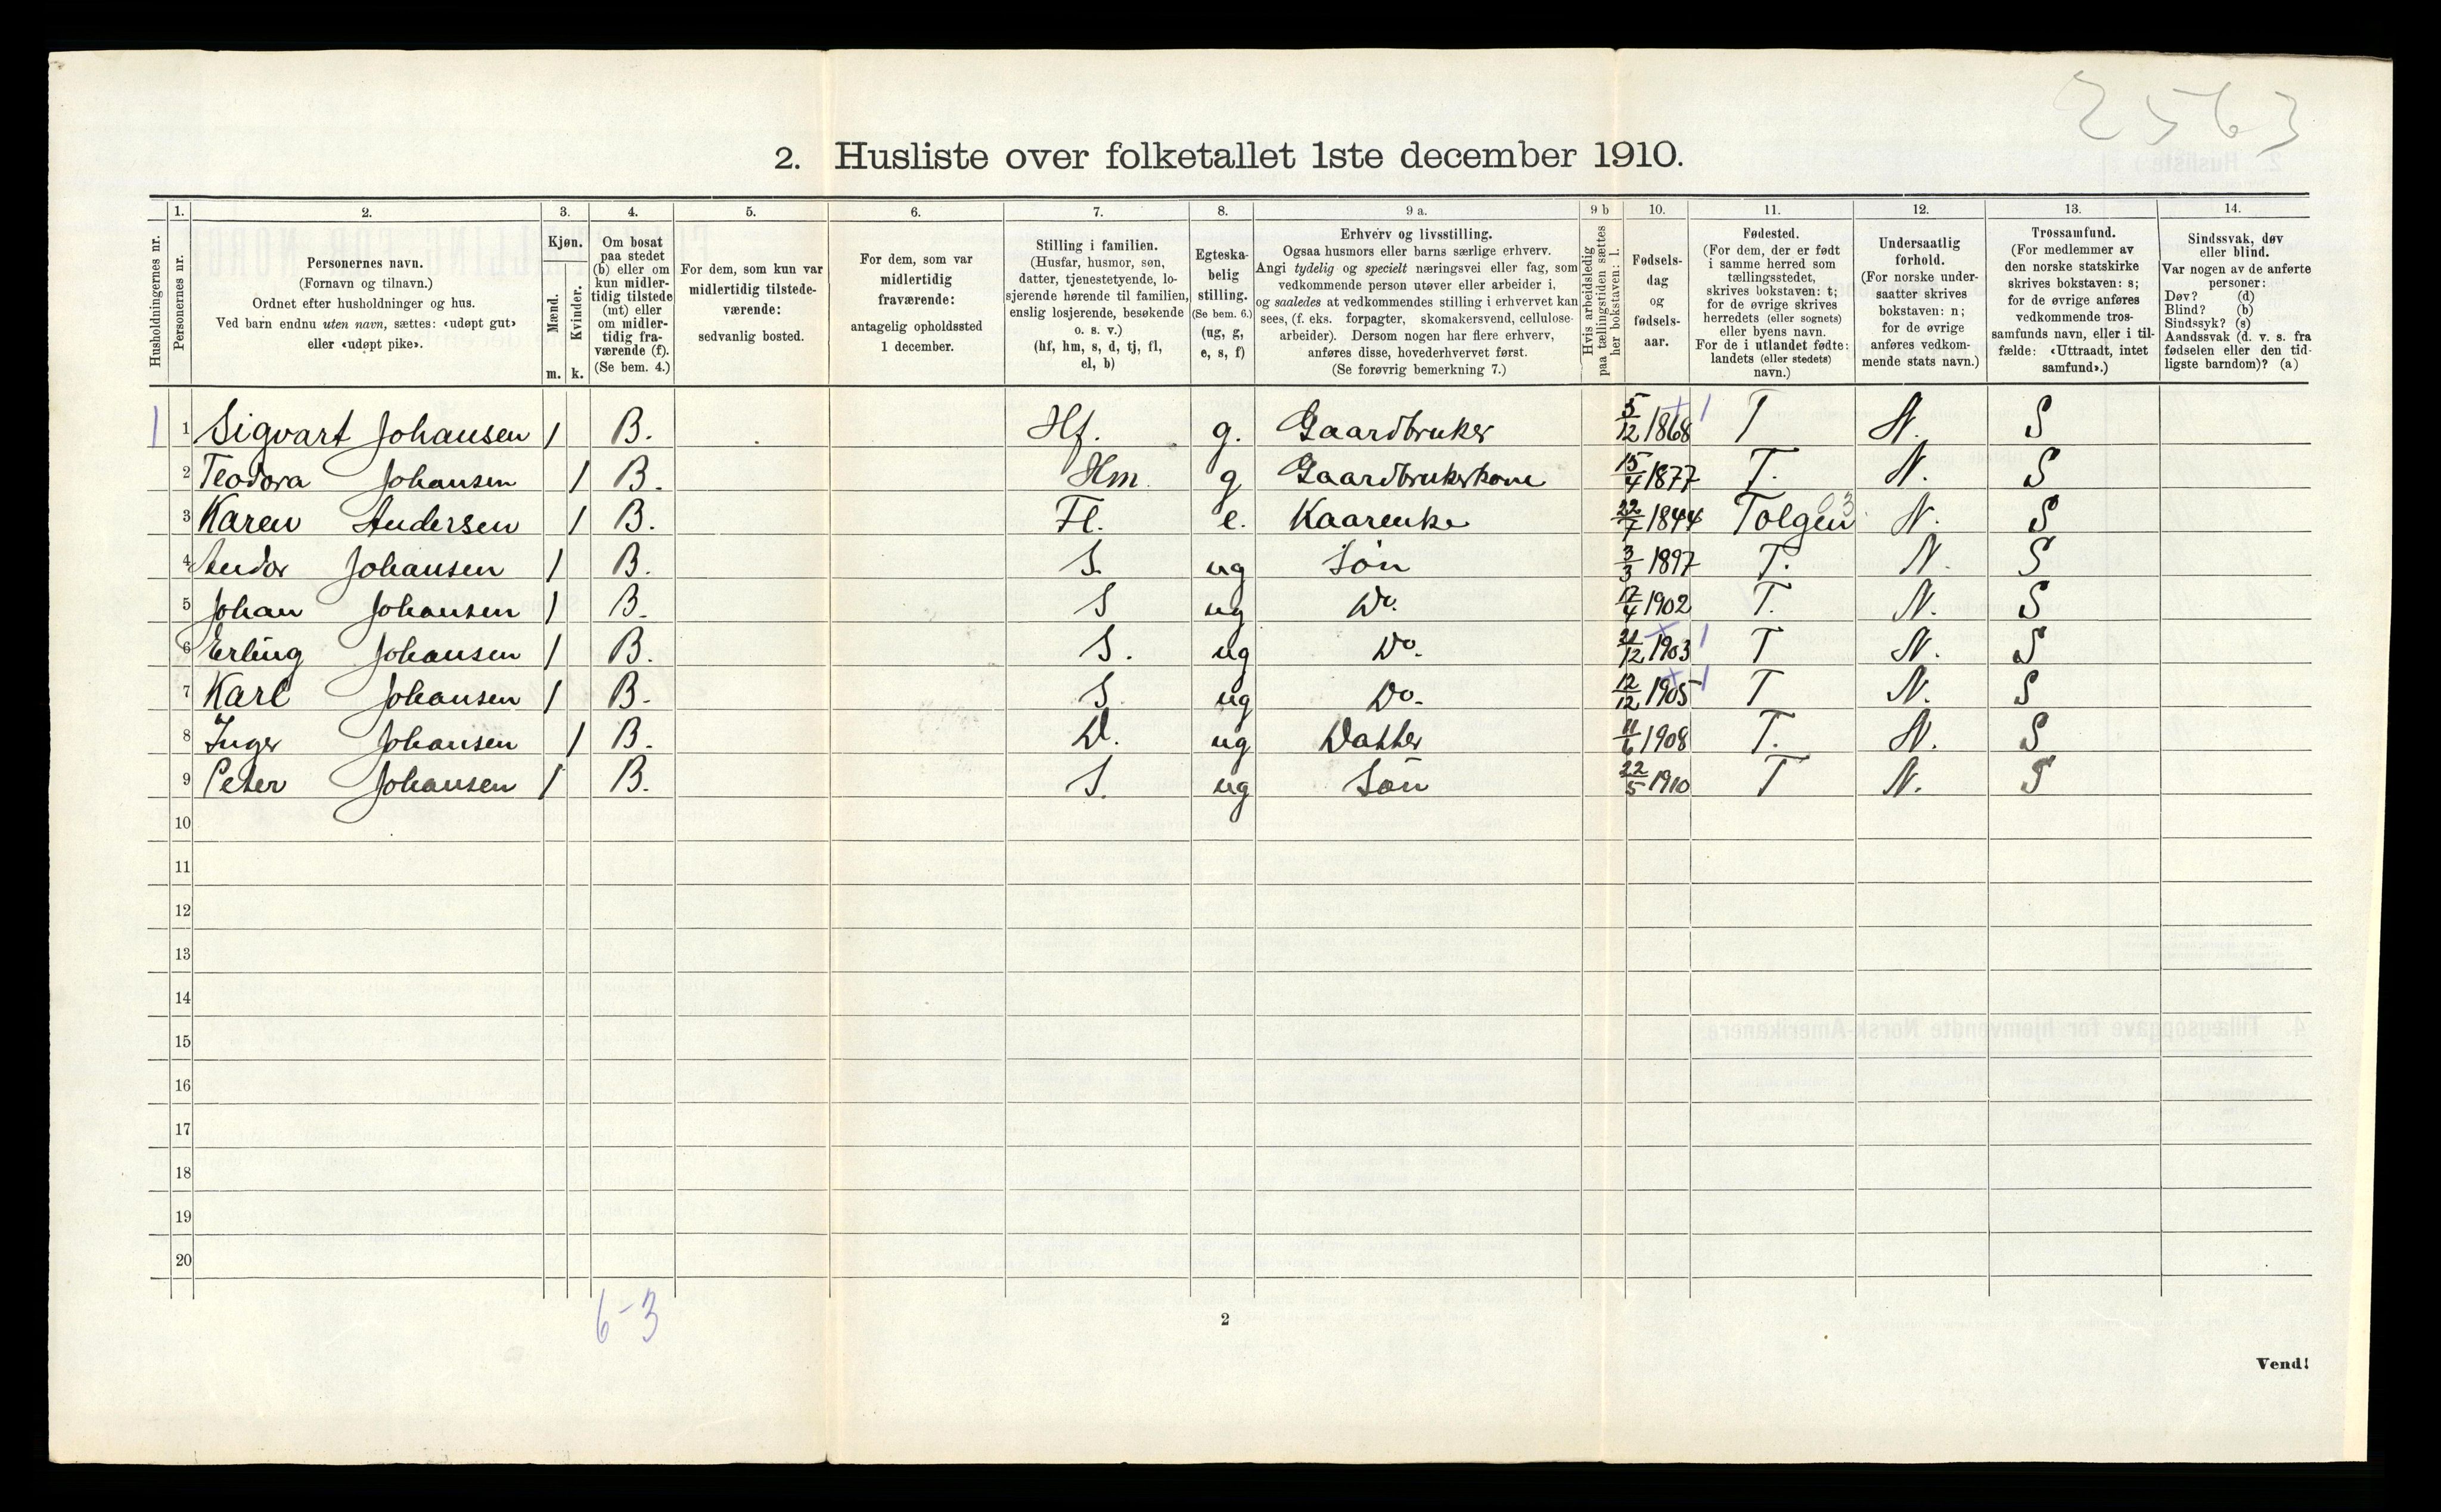 2563
2. Husliste over folketallet 1ste december 1910.
Husholdningernes nr.
1.
Personernes nr.
2.
Personernes navn.
(Fornavn og tilnavn.)
Ordnet efter husholdninger og hus.
Ved barn endnu uten navn, sættes: «udøpt gut»
eller «udøpt pike».
3.
Kjøn.
Mænd.
Kvinder.
m. k.
4.
Om bosat
paa stedet
(b) eller om
kun midler-
tidig tilstede
(mt) eller
om midler-
tidig fra-
værende (f).
(Se bem. 4.)
5.
For dem, som kun var
midlertidig tilstede-
værende:
sedvanlig bosted.
6.
For dem, som var
midlertidig
fraværende:
antagelig opholdssted
1 december.
7.
Stilling i familien.
(Husfar, husmor, søn,
datter, tjenestetyende, lo-
sjerende hørende til familien,
enslig losjerende, besøkende
o. s. v.)
(hf, hm, s, d, tj, fl,
el, b)
8.
Egteska-
belig
stilling.
(Se bem. 6.)
(ug, g,
e, s, f)
9 a.
Erhverv og livsstilling.
Ogsaa husmors eller barns særlige erhverv.
Angi tydelig og specielt næringsvei eller fag, som
vedkommende person utøver eller arbeider i,
og saaledes at vedkommendes stilling i erhvervet kan
sees, (f. eks. forpagter, skomakersvend, cellulose-
arbeider). Dersom nogen har flere erhverv,
anføres disse, hovederhvervet først.
(Se forøvrig bemerkning 7.)
9 b
Hvis arbeidsledig
paa tællingstiden sættes
her bokstaven: l.
10.
Fødsels-
dag
og
fødsels-
aar.
11.
Fødested.
(For dem, der er født
i samme herred som
tællingsstedet,
skrives bokstaven: t;
for de øvrige skrives
herredets (eller sognets)
eller byens navn.
For de i utlandet fødte:
landets (eller stedets)
navn.)
12.
Undersaatlig
forhold.
(For norske under-
saatter skrives
bokstaven: n;
for de øvrige
anføres vedkom-
mende stats navn.)
13.
Trossamfund.
(For medlemmer av
den norske statskirke
skrives bokstaven: s;
for de øvrige anføres
vedkommende tros-
samfunds navn, eller i til-
fælde: «Uttraadt, intet
samfund».)
14.
Sindssvak, døv
eller blind.
Var nogen av de anførte
personer:
Døv? (d)
Blind? (b)
Sindssyk? (s)
Aandssvak (d. v. s. fra
fødselen eller den tid-
ligste barndom)? (a)
1 1 Sigvart Johansen 1 B. Hf. g. Gaardbruker 5/12 1868 1 T N. S
2 Teodora Johansen 1 B. Hm. g Gaardbrukerkone 15/4 1877 T. N. S
3 Karen Andersen 1 B. Fl. e. Kaarenke 22/7 1844 Tolgen 03 N. S
4 Andor Johansen 1 B. S. ug Søn 3/3 1897 T. N. S
5 Johan Johansen 1 B. S ug Do. 17/4 1902 T. N. S
6 Erling Johansen 1 B. S. ug Do. 21/12 1903 1 T N. S
7 Karl Johansen 1 B. S. ug Do. 12/12 1905 1 T N. S
8 Inger Johansen 1 B. D. ug Datter 11/6 1908 T. N. S
9 Peter Johansen 1 B. S. ug Søn 22/5 1910 T N. S
10
11
12
13
14
15
16
17
18
19
20
6-3
2
Vend!